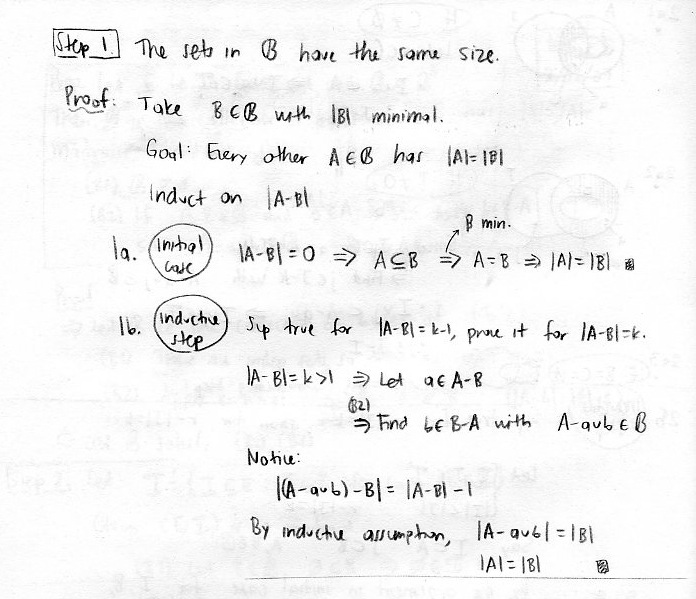 Step 1. The sets in B have the same size.
Proof: Take B ∈ B with |B| minimal.
Goal: Every other A ∈ B has |A| = |B|
Induct on |A-B|
B min.
1a. Initial case |A-B| = 0 ⇒ A ⊆ B ⇒ A = B ⇒ |A| = |B|
1b. Inductive step Sup true for |A-B| = k-1, prove it for |A-B| = k.
|A-B| = k > 1 ⇒ Let a ∈ A-B
(B2)
⇒ Find b ∈ B-A with A-a∪b ∈ B
Notice:
|(A-a∪b)-B| = |A-B| - 1
By inductive assumption, |A-a∪b| = |B|
|A| = |B|